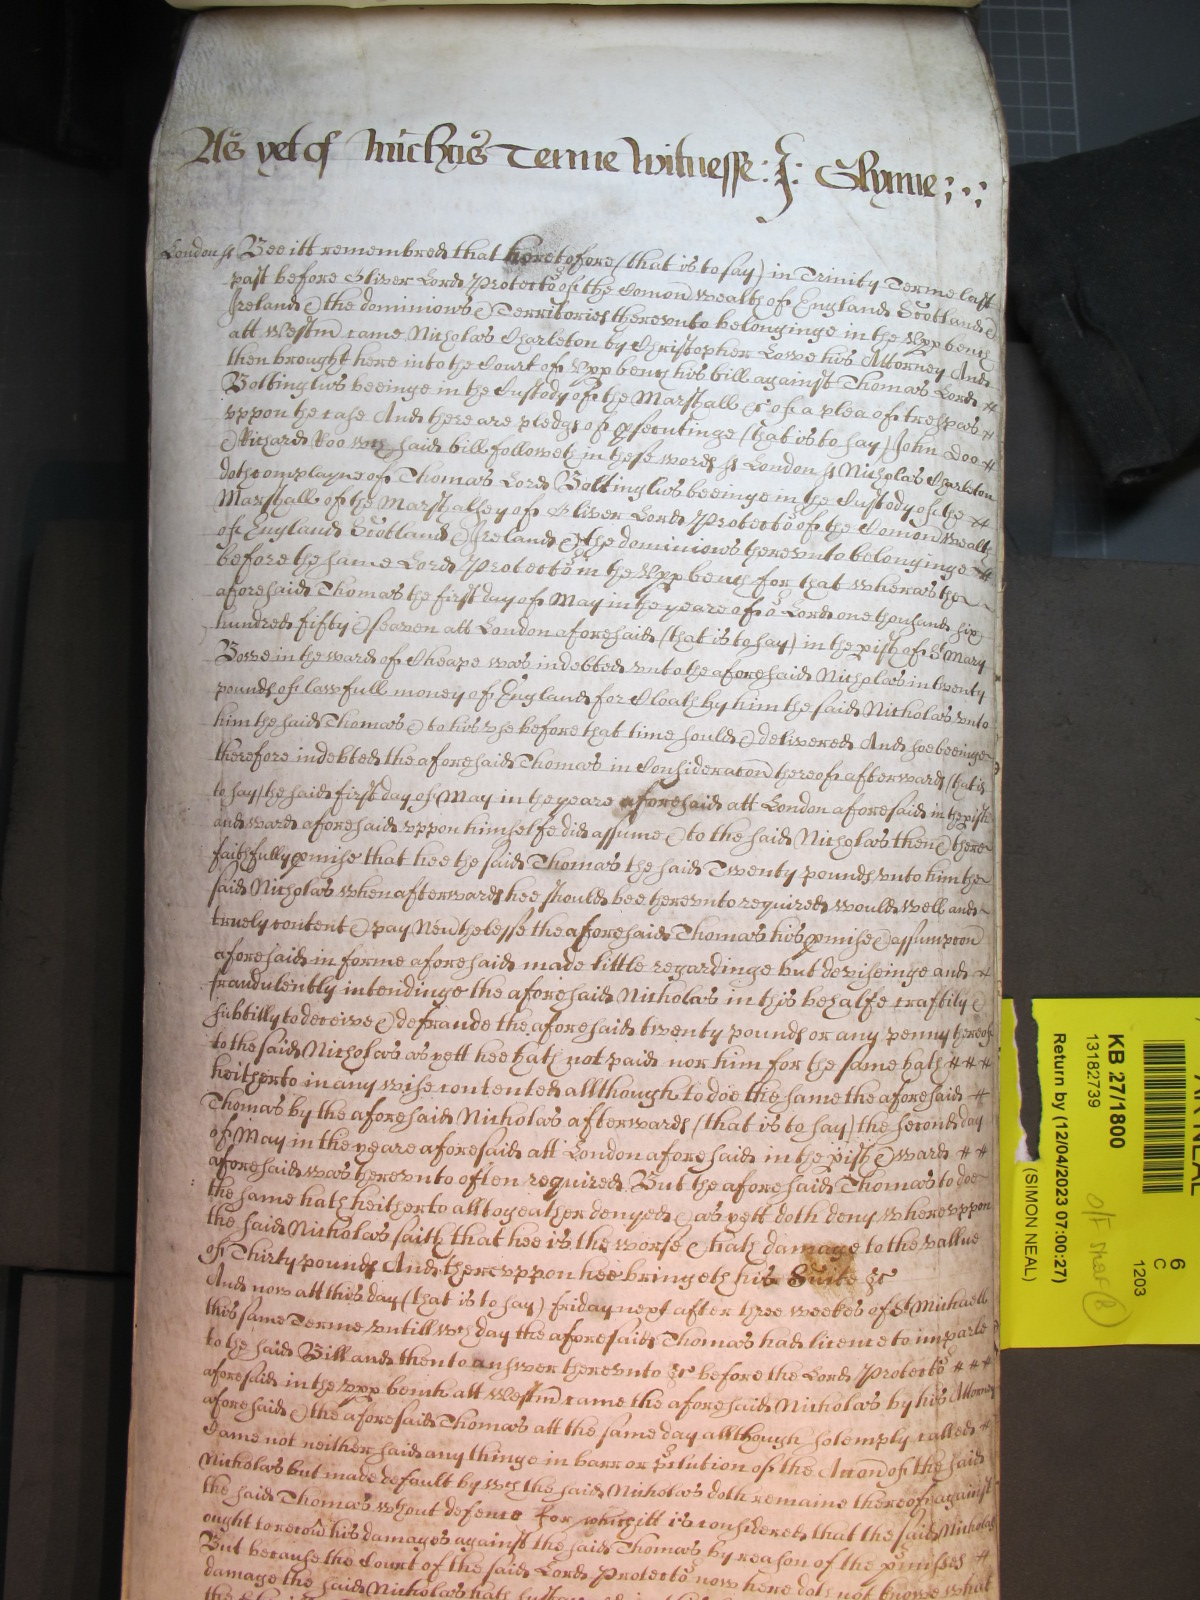 As yet of Michas Terme Witnesse: J: Glynne
London ss Bee itt remembred that heretofore (that is to say) in Trinity Terme last
past before Oliver Lord Protector of the Comon wealth of England Scotland &
Ireland & the dominions & Territories therevnto belonginge in the Vpp bench
att Westm came Nicholas Charleton by Christopher Lowe his Attorney And
then brought here into the Court of Vpp bench his bill against Thomas Lord #
Bollinglus beeinge in the Custody of the Marshall &c of a plea of trespas #
vppon the case And there are pledgs of psecutinge (that is to say) John Doo #
& Richard Roo wch said bill followeth in these words ss London ss Nicholas Charleton
doth complayne of Thomas Lord Bollinglus beeinge in the Custody of the #
Marshall of the Marshalsey of Oliver Lord Protector of the Comon Wealth
of England Scotland & Ireland & the dominions therevnto belonginge #
before the same Lord Protector in the Vpp bench for that wheras the
aforesaid Thomas the first day of May in the yeare of or Lord one thousand six
hundred fifty & seaven att London aforesaid (that is to say) in the pish of St Mary
Bowe in the ward of Cheape was indebted vnto the aforesaid Nicholas in twenty
pounds of lawfull money of England for Cloath by him the said Nicholas vnto
him the said Thomas & to his vse before that time sould & delivered And hee beeinge
therefore indebted the aforesaid Thomas in Consideracon thereof afterwards (that is
to say) the said first day of May in the yeare aforesaid att London aforesaid in the pish
and ward aforesaid vppon himselfe did assume & to the said Nicholas then & there
faithfully pmise that hee the said Thomas the said Twenty pounds vnto him the
said Nicholas when afterwards hee should bee therevnto required would well and
truely content & pay Nevthelesse the aforesaid Thomas his pmise & assumpcon
aforesaid in forme aforesaid made little regardinge but deviseinge and #
fraudulently intendinge the aforesaid Nicholas in this behalfe craftily &
subtilly to deceive & defraude the aforesaid twenty pounds or any penny thereof
to the said Nicholas as yett hee hath not paid nor him for the same hath # # #
heitherto in any wise contented allthough to doe the same the aforesaid #
Thomas by the aforesaid Nicholas afterwards (that is to say) the second day
of May in the yeare aforesaid att London aforesaid in the pish & ward # #
aforesaid was therevnto often required But the aforesaid Thomas to doe
the same hath heitherto alltogeather denyed & as yett doth deny wherevppon
the said Nicholas saith that hee is the worse & hath damage to the vallue
of Thirty pounds And therevppon hee bringeth his Suite &c
And now att this day (that is to say) friday next after three weekes of St Michaell
this same Terme vntill wch day the aforesaid Thomas had licence to imparle
to the said Bill and then to answer therevnto &c before the Lord Protector # # #
aforesaid in the vpp bench att Westm came the aforesaid Nicholas by his Attorney
aforesaid & the aforesaid Thomas att the same day allthough solemply called #
Came not neither said any thinge in barr or pclution of the Accon of the said
Nicholas but made default by wch the said Nicholas doth remaine thereof against
the said Thomas wthout defence For which itt is considered that the said Nicholas
ought to recour his damages against the said Thomas by reason of the pmisses #
But because the Court of the said Lord Protector now here doth not knowe what
damage the said Nicholas hath
KB 27/1800
13182739
Return by (12/04/2023 07:00:27)
(SIMON NEAL)
6
C
1203